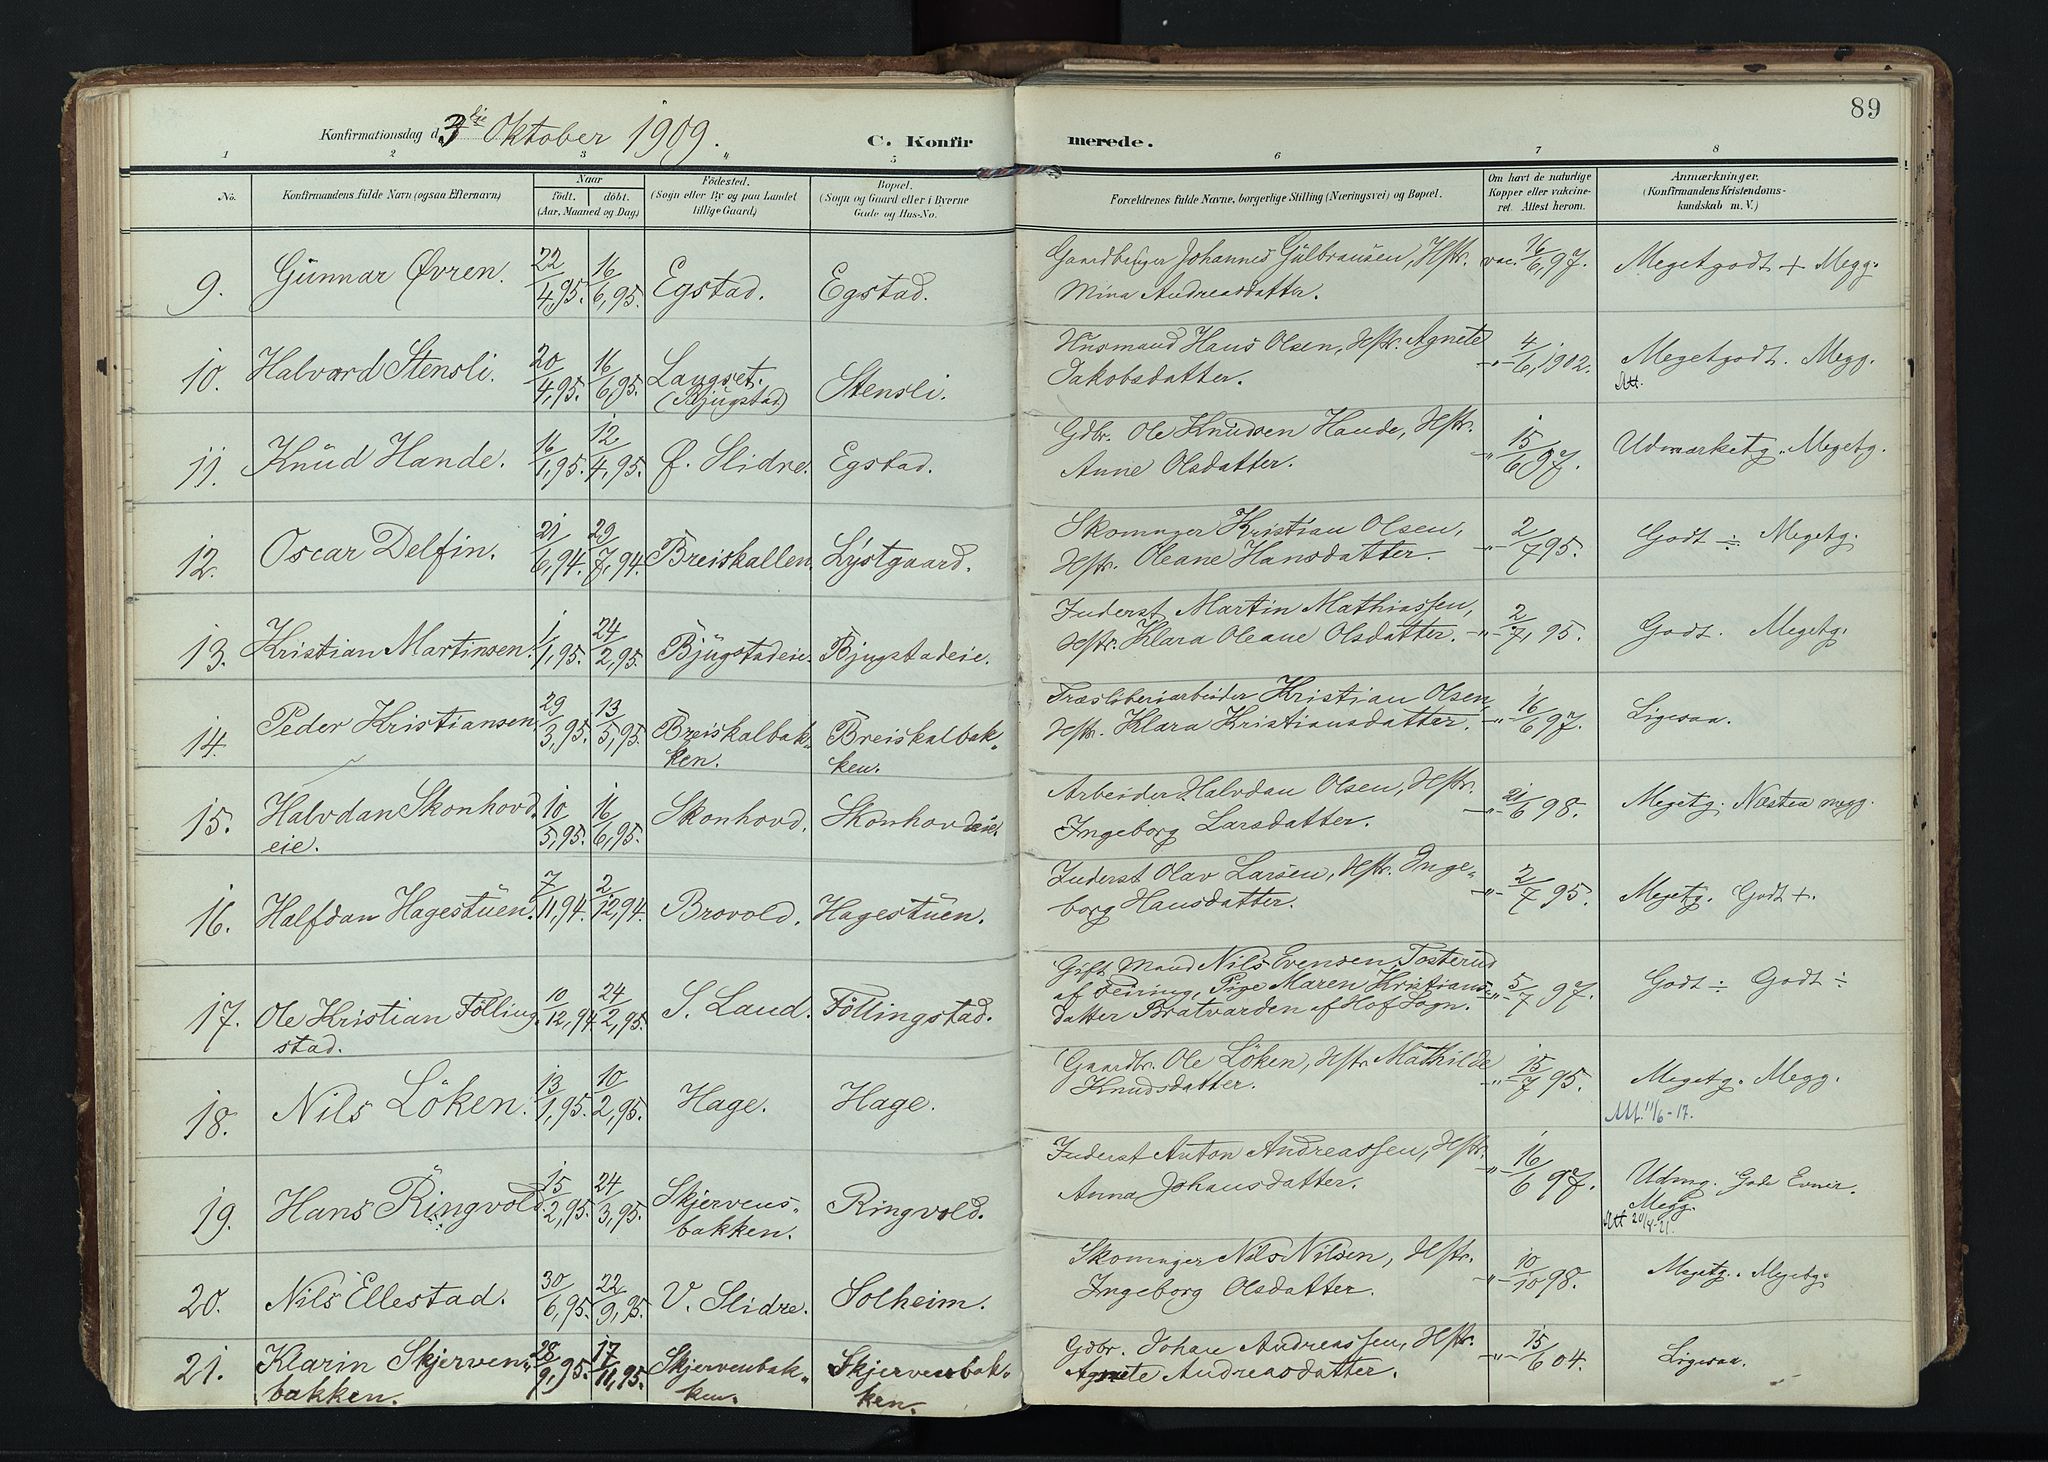 89
Konfirmationsdag d. 3die Oktober 1909.
C. Konfirmerede.
1 2 3 4 5 6 7 8
No.
Konfirmandens fulde Navn (ogsaa Efternavn)
Naar
födt. döbt.
(Aar, Maaned og Dag)
Födested.
(Sogn eller By og paa Landet
tillige Gaard)
Bopæl.
(Sogn og Gaard eller i Byerne
Gade og Hus-No.
Forældrenes fulde Navne, borgerlige Stilling (Næringsvei) og Bopæl.
Om havt de naturlige
Kopper eller vakcine-
ret. Attest herom.
Anmærkninger.
(Konfirmandens Kristendoms-
kundskab m. V.)
9. Gunnar Øvren. 22/4, 95. 16/6, 95. Egstad. Egstad. Gaardbruger Johannes Gulbransen, Hstr. vac. 16/6, 97. Megetgodt + Megg.
Mina Andreasdatter.
10. Halvard Stensli. 20/4, 95. 16/6, 95. Langset. Stensli. Husmand Hans Olsen, Hstr. Agnete -"- 4/6, 1902. Megetgodt. Megg.
(Bjugstad) Jakobsdatter. Att.
11. Knud Hande. 16/1, 95. 12/4, 95. Ø. Slidre. Egstad. Gdbr. Ole Knudsen Hande, Hstr. -"- 15/6 97. Udmærketg. Megetg.
Anne Olsdatter.
12. Oscar Delfin. 21/6, 94. 29/7, 94. Breiskallen. Lystgaard. Skomager Kristian Olsen, -"- 2/7 95. Godt ÷ Megetg.
Hstr. Oleane Hansdatter.
13. Kristian Martinsen. 1/1, 95. 24/2, 95. Bjugstadeie. Bjugstadeie. Inderst Martin Mathiassen, 2/7, 95. Godt. Megetg.
Hstr. Klara Oleane Olsdatter. -"-
14. Peder Kristiansen. 29/3, 95. 13/5, 95. Breiskalbak- Breiskalbak- Træsliberiarbeider Kristian Olsen, -"- 16/6 97. Ligesaa.
ken. ken. Hstr. Klara Kristiansdatter.
15. Halvdan Skonhovd- 10/5, 95. 16/6, 95. Skonhovd. Skonhovdeie. Arbeider Halvdan Olsen, Hstr. -"- 21/6 98. Megetg. Næsten megg.
eie. Ingeborg Larsdatter.
16. Halfdan Hagestuen. 7/11, 94. 2/12, 94. Brovold. Hagestuen. Inderst Olav Larsen, Hstr. Inge- -"- 2/7 95. Megetg. Godt +.
borg Hansdatter.
17. Ole Kristian Fölling- 10/12, 94 24/2, 95. S. Land. Föllingstad. Gift Mand Nils Evensen Tosterud -"- 5/7 97. Godt ÷ Godt ÷
stad. af Feiring, Pige Maren Kristians-
datter Bratvarden af Hof Sogn.
18. Nils Löken. 13/1, 95. 10/2, 95. Hage. Hage. Gaardbr. Ole Löken, Hstr. Mathilde -"- 15/7 95. Megetg. Megg.
Knudsdatter. Att. 11/6-17.
19. Hans Ringvold. 15/2, 95. 24/3, 95. Skjervens- Ringvold. Inderst Anton Andreassen, Hstr. -"- 16/6 97. Udmg. Gode Evner.
bakken. Anna Johansdatter. Megg.
Att 20/4-21.
20. Nils Ellestad. 30/6, 95. 22/9, 95. V. Slidre. Solheim. Skomager Nils Nilsen, Hstr. -"- 10/10 98. Megetg. Megetg.
Ingeborg Olsdatter.
21. Klarin Skjerven- 28/9, 95. 17/11, 95. Skjervenbak- Skjervenbak- Gdbr. Johan Andreassen, Hstr. -"- 15/6 04. Ligesaa.
bakken. ken. ken. Agnete Andreasdatter.